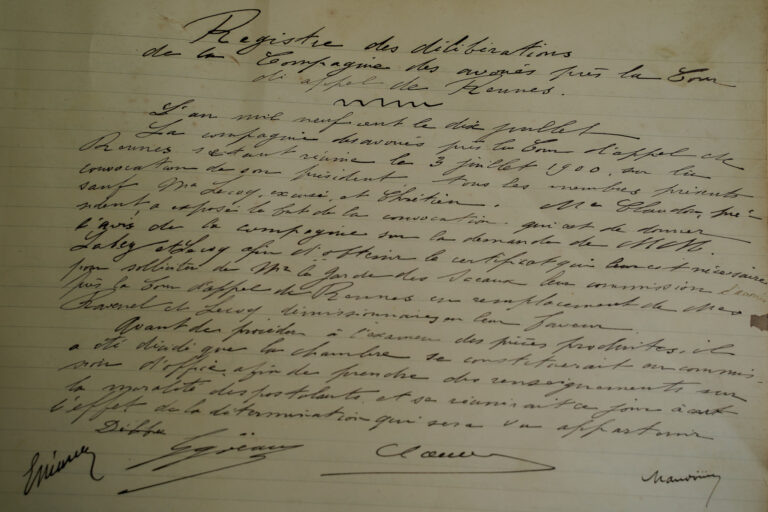 Registre des délibérations
de la Compagnie des avoués près la Cour
d'appel de Rennes.
L'an mil neuf cent le dix juillet
La compagnie des avoués près la Cour d'appel de
Rennes s'étant réunie le 3 juillet 1900, sur la
convocation de son président tous les membres présents
sauf Me Lecoq, excusé, et Chrétien. Me Claudon, pré-
sident, a exposé le but de la convocation qui est de donner
l'avis de la compagnie sur la demande de MM.
et Lecoq afin d'obtenir le certificat qui leur est nécessaire
pour solliciter de Mr le Garde des Sceaux leur commission d'avoués
près la Cour d'appel de Rennes en remplacement de Mes
Ravenel et Lecoq démissionnaires en leur faveur.
Avant de procéder à l'examen des pièces produites, il
a été décidé que la chambre se constituerait en commis-
sion d'office afin de prendre des renseignements sur
la moralité des postulants et se réunirait ce jour à cet
l'effet de la détermination qui sera vu appartenir